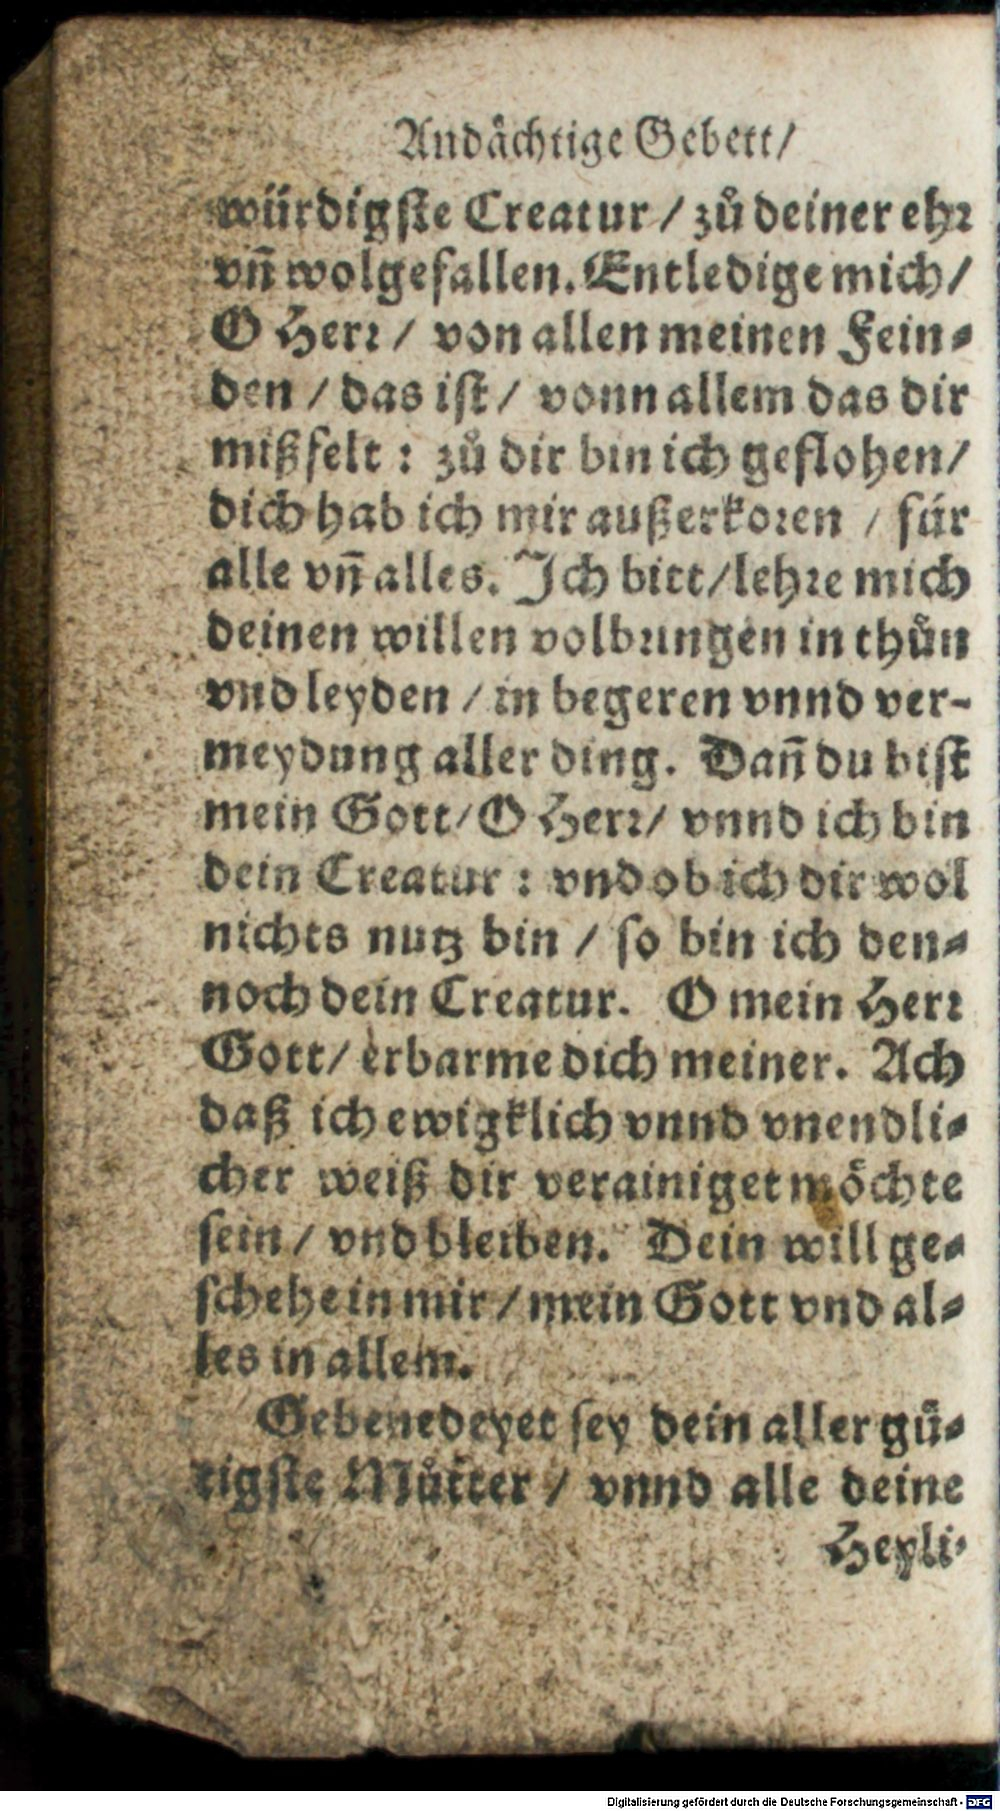 Andächtige Gebett/
würdigste Creatur / zů deiner ehr
vn̄ wolgefallen. Entledige mich/
O Herr / von allen meinen Fein-
den / das ist / vonn allem das dir
mißfelt : zů dir bin ich geflohen/
dich hab ich mir außerkoren / für
alle vn̄ alles. Ich bitt/lehre mich
deinen willen volbringen in thůn
vnd leyden / in begeren vnnd ver-
meydung aller ding. Dan̄ du bist
mein Gott/O Herr/ vnnd ich bin
dein Creatur : vnd ob ich dir wol
nichts nutz bin / so bin ich den-
noch dein Creatur. O mein Herr
Gott/ erbarme dich meiner. Ach
daß ich ewigklich vnnd vnendli-
cher weiß dir verainiget möchte
sein / vnd bleiben. Dein will ge-
schehe in mir / mein Gott vnd al-
les in allem.
Gebenedeyet sey dein aller gü-
tigste Můtter / vnnd alle deine
Heyli-
Digitalisierung gefördert durch die Deutsche Forschungsgemeinschaft - DFG